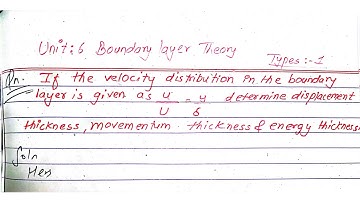 Unit: 6 Boundary layer Theory
Types :- 1
Qn. If the velocity distribution in the boundary
layer is given as u/U = y/δ determine displacement
thickness, movementum thickness & energy thickness.
Soln
Here